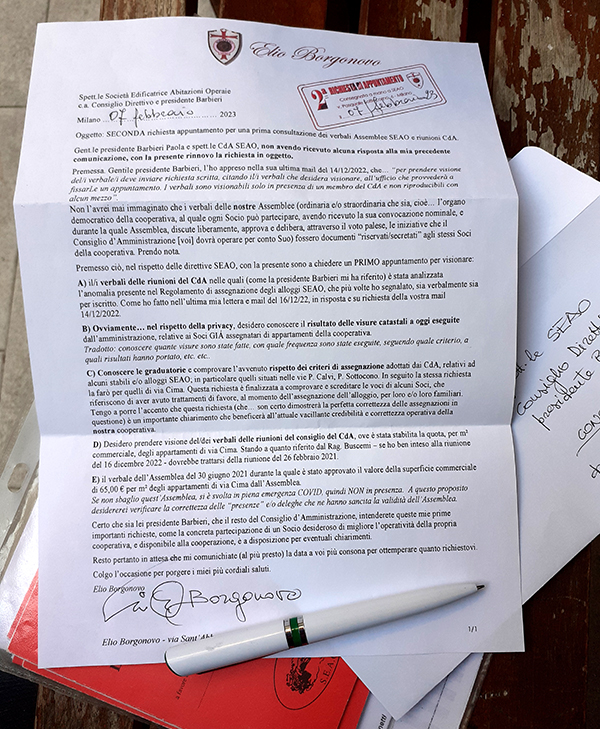 Elio Borgonovo
Spett.le Società Edificatrice Abitazioni Operaie
c.a. Consiglio Direttivo e presidente Barbieri
Milano 07 febbraio 2023
2ª RICHIESTA DI APPUNTAMENTO
Consegnata a mano a SEAO
07 febbraio 23
Oggetto: SECONDA richiesta appuntamento per una prima consultazione dei verbali Assemblee SEAO e riunioni CdA.
Gent.le presidente Barbieri Paola e spett.le CdA SEAO, non avendo ricevuto alcuna risposta alla mia precedente
comunicazione, con la presente rinnovo la richiesta in oggetto.
Premessa. Gentile presidente Barbieri, l'ho appreso nella sua ultima mail del 14/12/2022, che… “per prendere visione
del/i verbale/i deve inviare richiesta scritta, citando il/i verbali che desidera visionare, all'ufficio che provvederà a
fissarLe un appuntamento. I verbali sono visionabili solo in presenza di un membro del CdA e non riproducibili con
alcun mezzo”.
Non l'avrei mai immaginato che i verbali delle nostre Assemblee (ordinaria e/o straordinaria che sia, cioè… l'organo
democratico della cooperativa, al quale ogni Socio può partecipare, avendo ricevuto la sua convocazione nominale, e
durante la quale Assemblea, discute liberamente, approva e delibera, attraverso il voto palese, le iniziative che il
Consiglio d'Amministrazione [voi] dovrà operare per conto Suo) fossero documenti “riservati/secretati” agli stessi Soci
della cooperativa. Prendo nota.
Premesso ciò, nel rispetto delle direttive SEAO, con la presente sono a chiedere un PRIMO appuntamento per visionare:
A) il/i verbali delle riunioni del CdA nelle quali (come la presidente Barbieri mi ha riferito) è stata analizzata
l'anomalia presente nel Regolamento di assegnazione degli alloggi SEAO, che più volte ho segnalato, sia verbalmente sia
per iscritto. Come ho fatto nell'ultima mia lettera e mail del 16/12/22, in risposta e su richiesta della vostra mail
14/12/2022.
B) Ovviamente… nel rispetto della privacy, desidero conoscere il risultato delle visure catastali a oggi eseguite
dall'amministrazione, relative ai Soci GIÁ assegnatari di appartamenti della cooperativa.
Tradotto: conoscere quante visure sono state fatte, con quale frequenza sono state eseguite, seguendo quale criterio, a
quali risultati hanno portato, etc. etc.
C) Conoscere le graduatorie e comprovare l'avvenuto rispetto dei criteri di assegnazione adottati dai CdA, relativi ad
alcuni stabili e/o alloggi SEAO; in particolare quelli situati nelle vie P. Calvi, P. Sottocorno. In seguito la stessa richiesta
la farò per quelli di via Cima. Questa richiesta è finalizzata a comprovare e screditare le voci di alcuni Soci, che
riferiscono di aver avuto trattamenti di favore, al momento dell'assegnazione dell'alloggio, per loro e/o loro familiari.
Tengo a porre l'accento che questa richiesta (che… son certo dimostrerà la perfetta correttezza delle assegnazioni in
questione) è un importante chiarimento che beneficerà all'attuale vacillante credibilità e correttezza operativa della
nostra cooperativa.
D) Desidero prendere visione del/dei verbali delle riunioni del consiglio del CdA, ove è stata stabilita la quota, per m²
commerciale, degli appartamenti di via Cima. Stando a quanto riferito dal Rag. Buscemi – se ho ben inteso alla riunione
del 16 dicembre 2022 - dovrebbe trattarsi della riunione del 26 febbraio 2021.
E) il verbale dell'Assemblea del 30 giugno 2021 durante la quale è stato approvato il valore della superficie commerciale
di 65,00 € per m² degli appartamenti di via Cima dall'Assemblea.
Se non sbaglio quest'Assemblea, si è svolta in piena emergenza COVID, quindi NON in presenza. A questo proposito
desidererei verificare la correttezza delle “presenze” e/o deleghe che ne hanno sancita la validità dell'Assemblea.
Certo che sia lei presidente Barbieri, che il resto del Consiglio d'Amministrazione, intenderete queste mie prime
importanti richieste, come la concreta partecipazione di un Socio desideroso di migliore l'operatività della propria
cooperativa, e disponibile alla cooperazione, è a disposizione per eventuali chiarimenti.
Resto pertanto in attesa che mi comunichiate (al più presto) la data a voi più consona per ottemperare quanto richiestovi.
Colgo l'occasione per porgere i miei più cordiali saluti.
Elio Borgonovo
Borgonovo
Elio Borgonovo - via Sant'Abb
1/1
SEAO
Consiglio Dirett
presidente B
S.E.A.O.